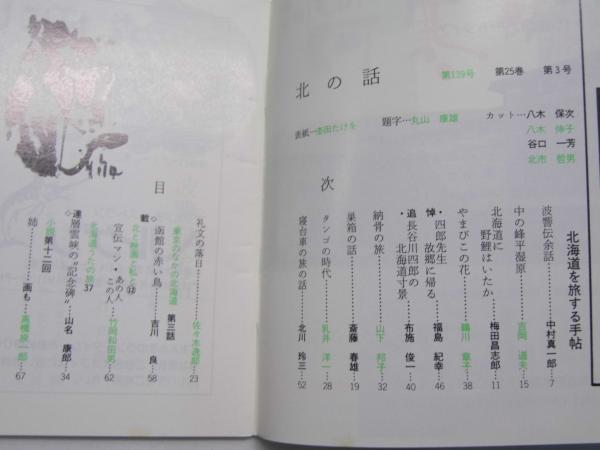 北海道を旅する手帖
北の話
第139号 第25巻 第3号
表紙…本田たけを
題字…丸山 康雄
カット…八木 保次
八木 伸子
谷口 一芳
北市 哲男
目次
波響伝余話……中村真一郎…7
中の峰平湿原……吉岡 道夫…15
北海道に
野鯉はいたか……梅田昌志郎…11
やまびこの花……鶴川 章子…38
悼・四郎先生 故郷に帰る……福島 紀幸…46
追・長谷川四郎の
北海道寸景……布施 俊一…40
納骨の旅……山下 邦子…32
巣箱の話……斎藤 春雄…19
タンゴの時代……乳井 洋一…28
寝台車の旅の話……北川 玲三…52
礼文の落日……佐々木逸郎…23
東京のなかの北海道 第三話
連載
◇函館の赤い鳥……吉川 良…58
北と映画と私と⑫
宣伝マン・あの人
この人……竹岡和田男…62
北海道うたの旅37
◇層雲峡の"記念碑"……山名 康郎…34
小説 第十二回
姉……画も…高橋揆一郎…67